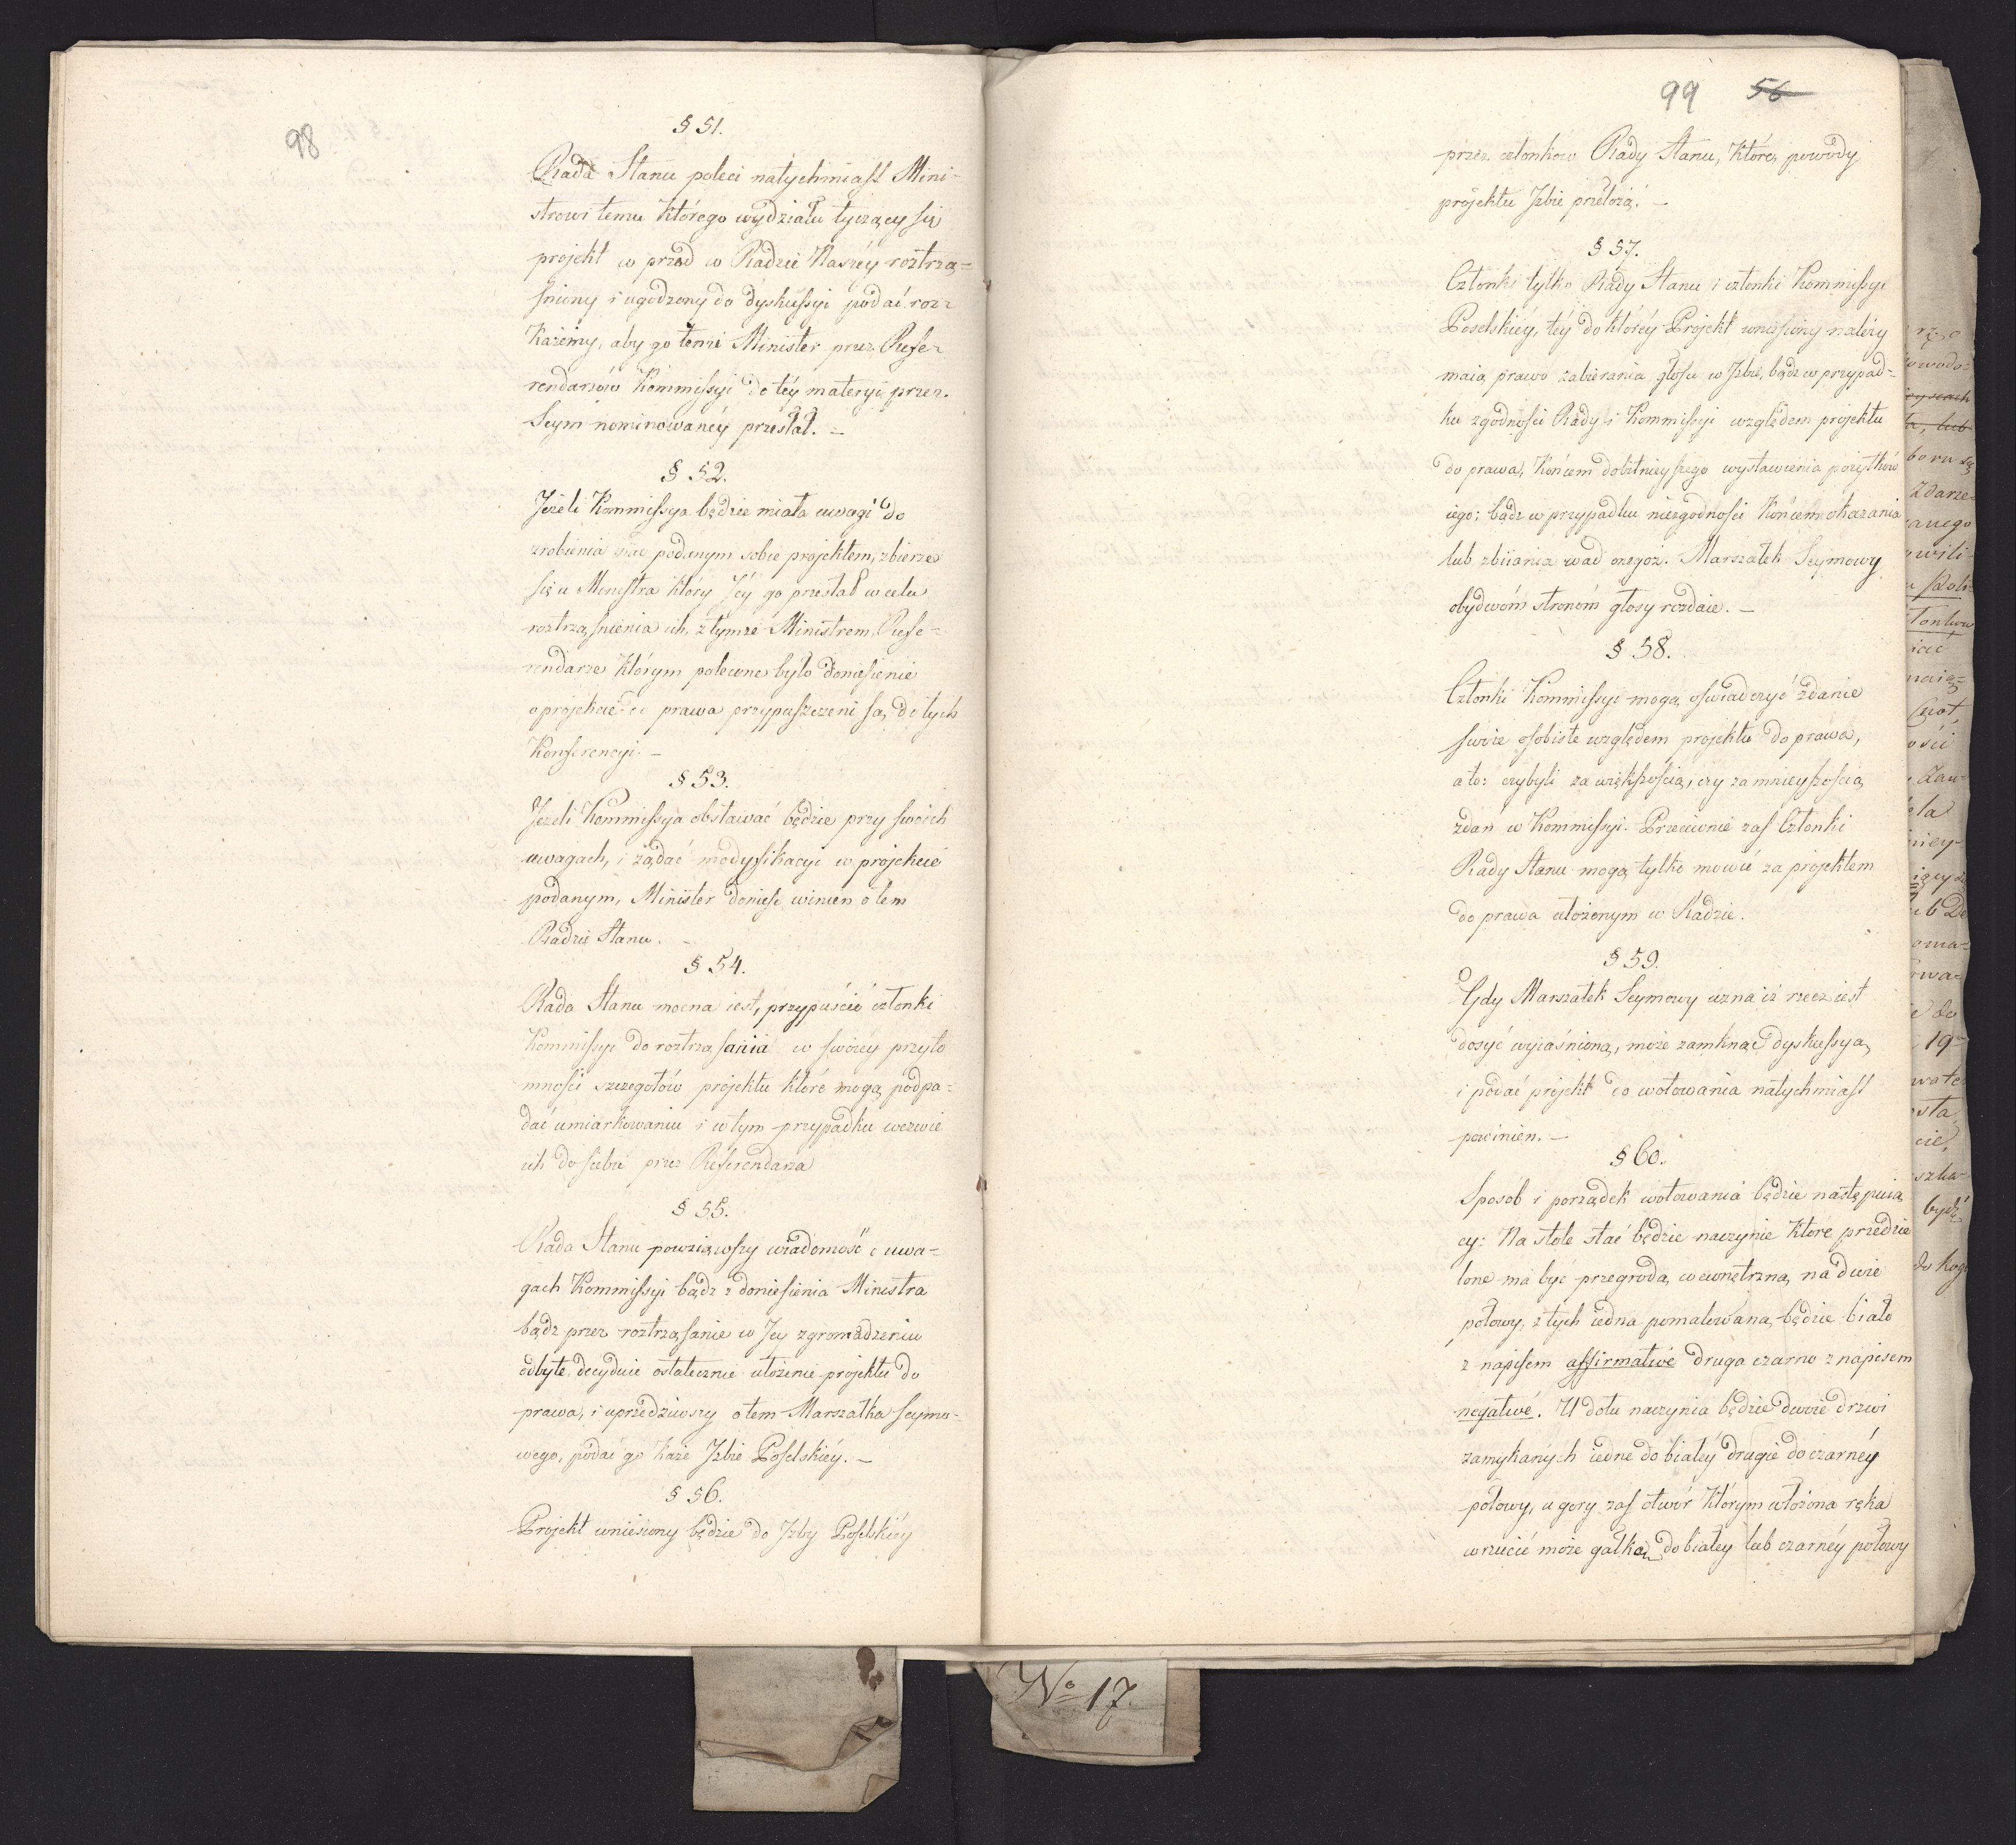 98
§ 51.
Rada Stanu poleci natychmiast Mini-
strowi temu którego wydziału tyczący się
projekt w przód w Radzie Naszéy roztrzą=
śniony i ugodzony do dyskussyi podać roz=
każemy, aby go tenże Minister przez Refe-
rendarzów Kommissyi do téy materyi przez
Seym nominowanéy przesłał. –
§ 52.
Jeżeli Kommissya będzie miała uwagi do
zrobienia nad podanym sobie projektem, zbierze
się u Ministra który Jéy go przesłał w celu
roztrząśnienia ich, z tymże Ministrem, Refe=
rendarze którym polecone było doniesienie
o projekcie do prawa przypuszczeni są, do tych
Konferencyi. –
§ 53.
Jeżeli Kommissya obstawać będzie przy swoich
uwagach, i żądać modyfikacyi w projekcie
podanym, Minister donieść winien o tem
Radzie Stanu. –
§ 54.
Rada Stanu mocna iest, przypuścić członki
Kommissyi do roztrząsania w swoiéy przyto
mności szczegołów projektu które mogą podpa=
dać umiarkowaniu i w tym przypadku wezwie
ich do siebie przez Referendarza
§ 55.
Rada Stanu powziąwszy wiadomość o uwa-
gach Kommissyi bądź z doniesienia Ministra
bądz przez roztrząsanie w Jey zgromadzeniu
odbyte decyduie ostatecznie ułożenie projektu do
prawa, i uprzedziwszy o tem Marszałka seymo-
wego, podać go każe Izbie Poselskiéy. –
§ 56.
Projekt wniesiony będzie do Izby Poselskiéy
99 56
przez członkow Rady Stanu, którzy powody
projektu Izbie przełożą. –
§ 57.
Członki tylko Rady Stanu i członki Kommissyi
Poselskiéy, téy do któréy Projekt wniesiony należy
maią prawo zabierania głosu w Izbie, bądz w przypad=
ku zgodności Rady i Kommissyi względem projektu
do prawa, końcem dobitnieyszego wystawienia pożytków
iego; bądz w przypadku niezgodności końcem okazania
lub zbiiania wad onegoż. Marszałek Seymowy
obydwóm stronóm głosy rozdaie. –
§ 58.
Członki Kommissyi mogą oświadczyć zdanie
swoie osobiste względem projektu do prawa,
a to: czy byli za większością, czy za mnieyszością
zdań w Kommissyi. Przeciwnie zaś Członki
Rady Stanu mogą tylko mowić za projektem
do prawa ułożonym w Radzie.
§ 59.
Gdy Marszałek Seymowy uzna iż rzecz iest
dosyć wyiaśnioną, może zamknąć dyskussyą
i podać projekt do wotowania natychmiast
powinien. –
§ 60.
Sposob i porządek wotowania będzie następuią
cy: Na stole stać będzie naczynie które przedzie
lone ma być przegrodą wewnętrzną na dwie
połowy, z tych iedna pomalowana będzie biało
z napisem affirmativé druga czarno z napisem
negativé. U dołu naczynia będzie dwoie drzwi
zamykanych iedne do białéy drugie do czarnéy
połowy, u gory zaś otwór którym włożona ręka
wrzucić może gałkę do białey lub czarnéy połowy
19
być
do kogo
No 17.